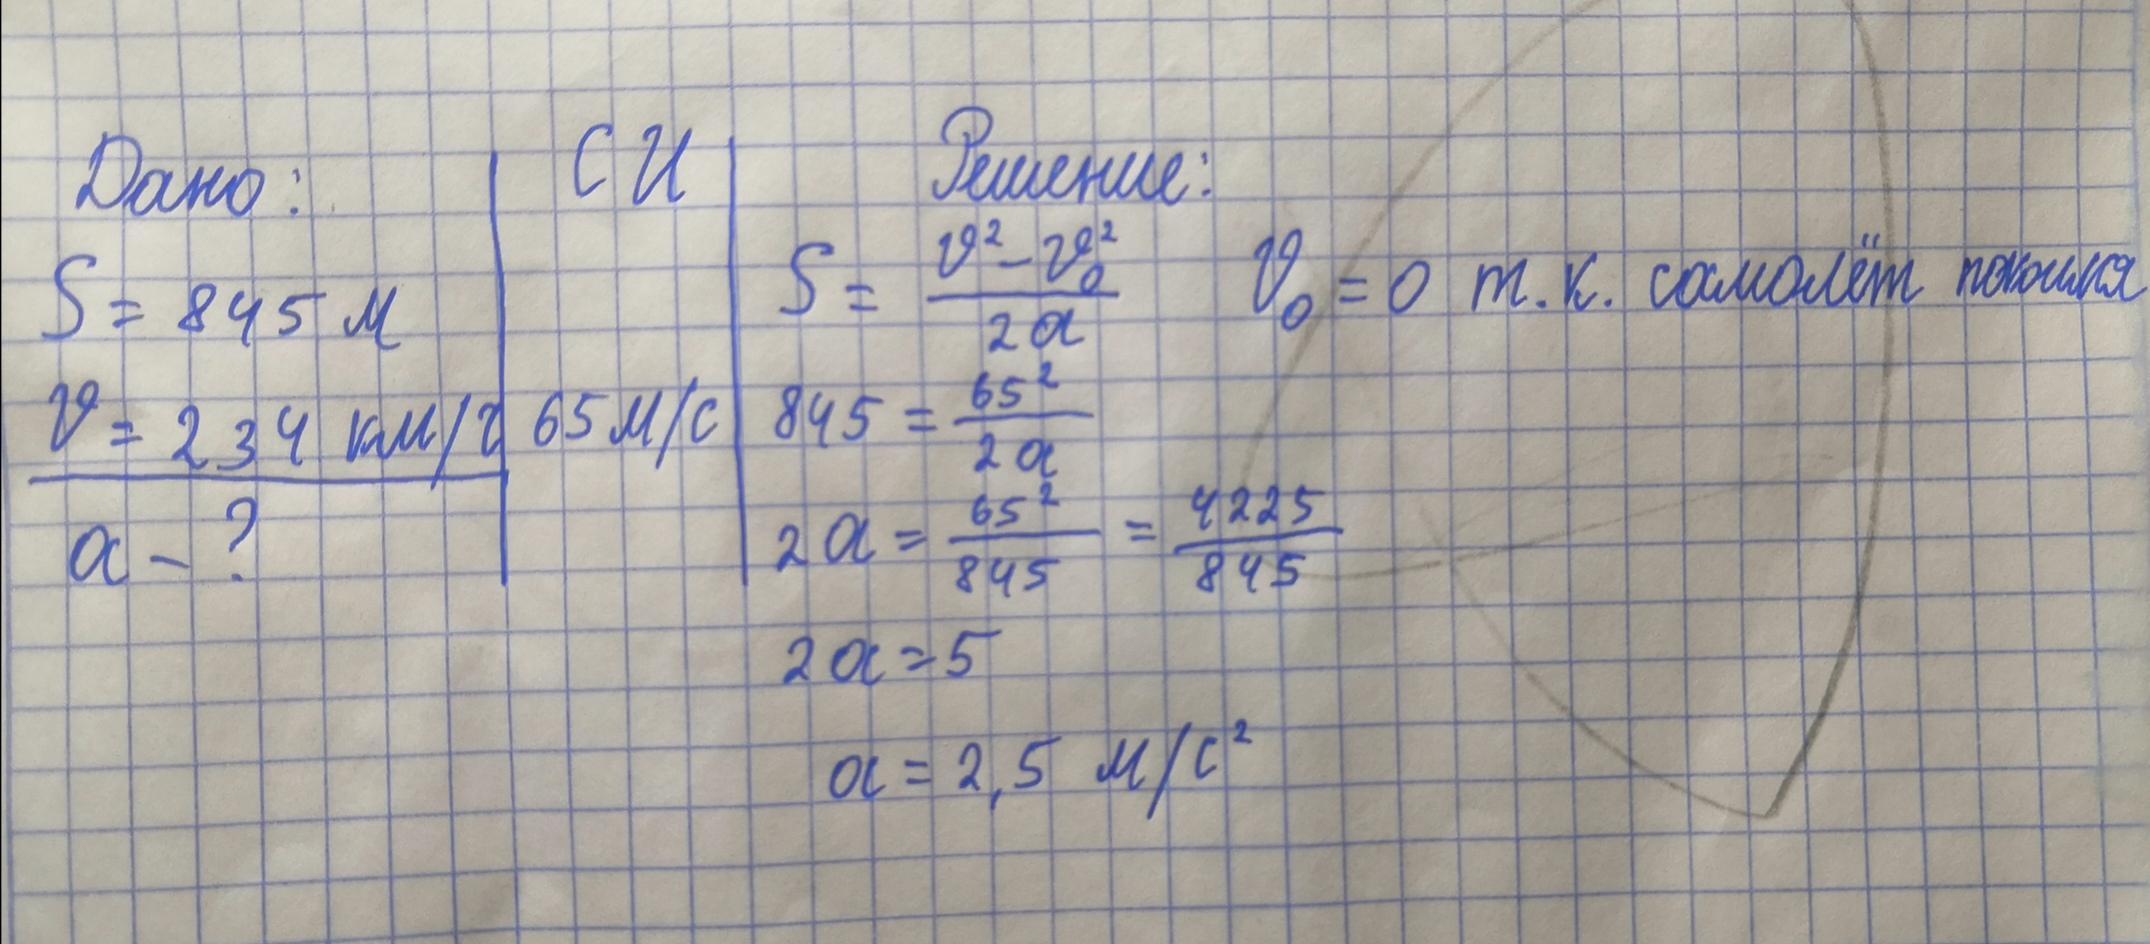 Дано:
S = 845 м
υ = 234 км/ч
a - ?
СИ
65 м/с
Решение:
S = (υ² - υ₀²) / 2a υ₀ = 0 т.к. самолёт
845 = 65² / 2a
2a = 65² / 845 = 4225 / 845
2a = 5
a = 2,5 м/с²